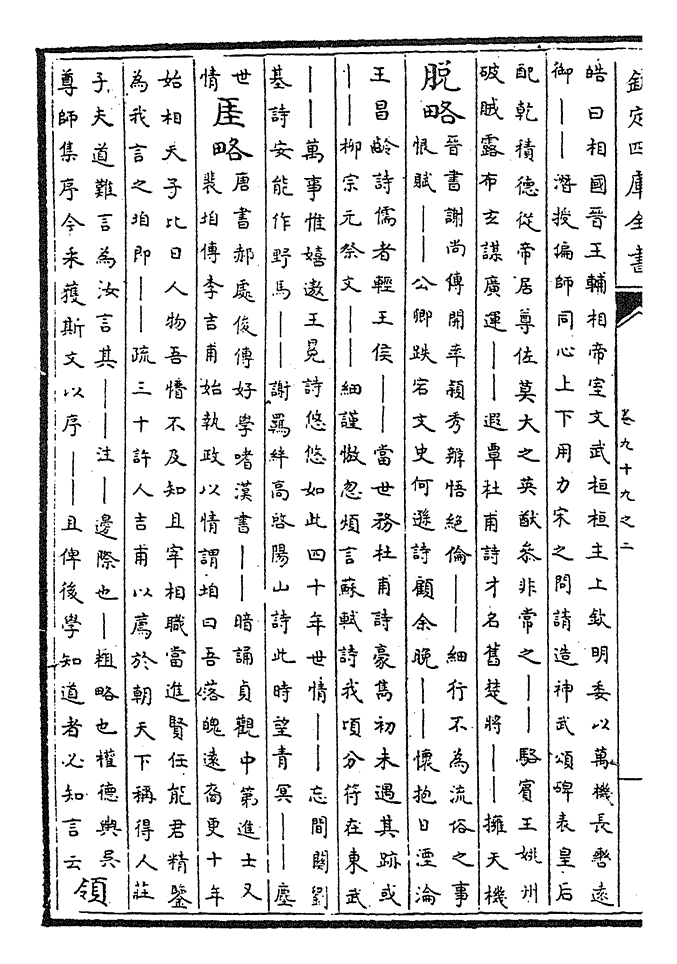 欽定四庫全書
卷九十九之二
皓曰相國晉王輔相帝室文武桓桓主上欽明委以萬機長轡遠
御――潛授偏師同心上下用力宋之問請造神武頌碑表皇后
配乾積德從帝居尊佐莫大之英猷參非常之――駱賓王姚州
破賊露布玄謀廣運――遐覃杜甫詩才名舊楚將――擁天機
脫略
晉書謝尚傳開率穎秀辨悟絕倫――細行不為流俗之事
恨賦――公卿跌宕文史何遜詩顧余晚――懷抱日湮淪
王昌齡詩儒者輕王侯――當世務杜甫詩豪雋初未遇其跡或
――柳宗元祭文――細謹慠忽煩言蘇軾詩我頃分符在東武
――萬事惟嬉遨王冕詩悠悠如此四十年世情――忘間關劉
基詩安能作野馬――謝羈絆高啓陽山詩此時望青冥――塵
世
情
厓略
唐書郝處俊傳好學嗜漢書――暗誦貞觀中第進士又
裴垍傳李吉甫始執政以情謂垍曰吾落魄遠裔更十年
始相天子比日人物吾懵不及知且宰相職當進賢任能君精鑒
為我言之垍即――疏三十許人吉甫以薦於朝天下稱得人莊
子夫道難言為汝言其――注―邊際也―粗略也權德輿吳
尊師集序今采獲斯文以序――且俾後學知道者必知言云
領